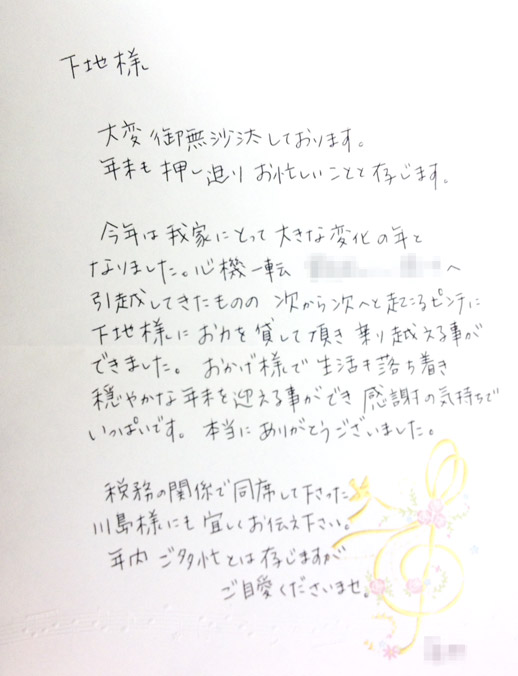 下地様
大変御無沙汰しております。
年末も押し迫り お忙しいことと存じます。
今年は我家にとって大きな変化の年と
なりました。心機一転 へ
引越してきたものの 次から次へと起こるピンチに
下地様にお力を貸して頂き乗り越える事が
できました。おかげ様で生活も落ち着き
穏やかな年末を迎える事ができ 感謝の気持ちで
いっぱいです。本当にありがとうございました。
税務の関係で同席して下さった
川島様にも宜しくお伝え下さい。
年内 ご多忙とは存じますが
ご自愛くださいませ。